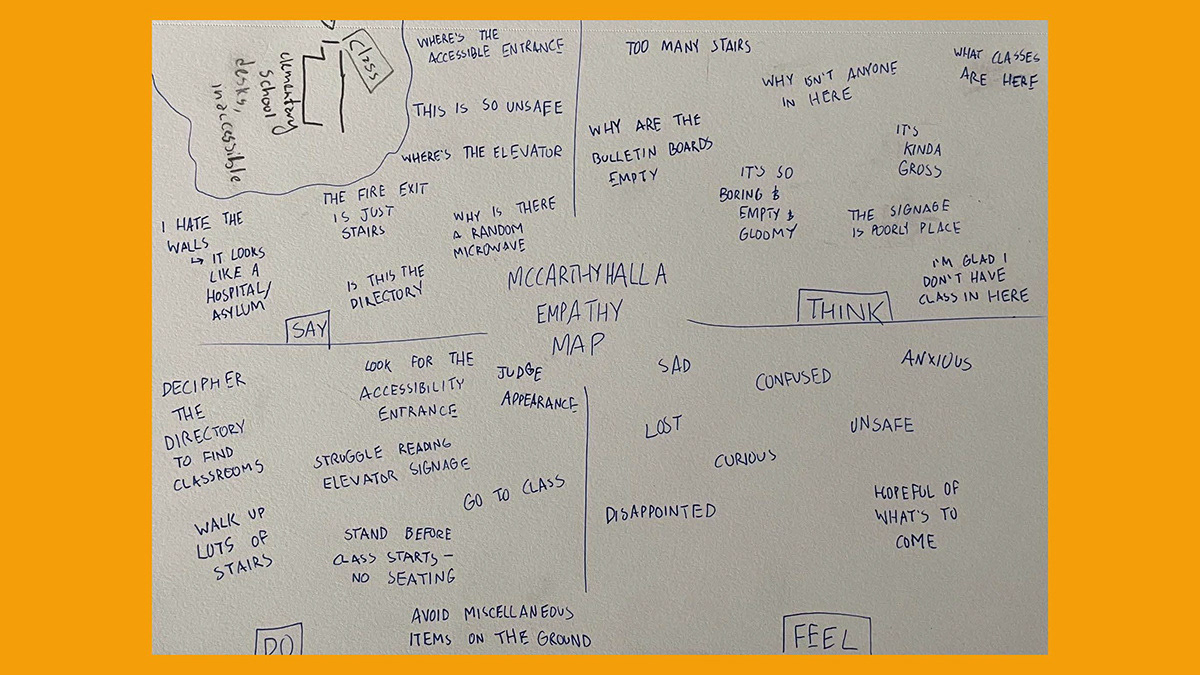 class
elementary
school
desks,
inaccessible
WHERE'S THE
ACCESSIBLE ENTRANCE
THIS IS SO UNSAFE
WHERE'S THE ELEVATOR
THE FIRE EXIT
IS JUST
STAIRS
I HATE THE
WALLS
↳ IT LOOKS
LIKE A
HOSPITAL/
ASYLUM
WHY IS THERE
A RANDOM
MICROWAVE
IS THIS THE
DIRECTORY
SAY
TOO MANY STAIRS
WHY ISN'T ANYONE
IN HERE
WHAT CLASSES
ARE HERE
WHY ARE THE
BULLETIN BOARDS
EMPTY
IT'S
KINDA
GROSS
IT'S SO
BORING &
EMPTY &
GLOOMY
THE SIGNAGE
IS POORLY PLACE
I'M GLAD I
DON'T HAVE
CLASS IN HERE
THINK
MCCARTHY HALL A
EMPATHY
MAP
DECIPHER
THE
DIRECTORY
TO FIND
CLASSROOMS
LOOK FOR THE
ACCESSIBILITY
ENTRANCE
JUDGE
APPEARANCE
STRUGGLE READING
ELEVATOR SIGNAGE
GO TO CLASS
WALK UP
LOTS OF
STAIRS
STAND BEFORE
CLASS STARTS –
NO SEATING
AVOID MISCELLANEOUS
ITEMS ON THE GROUND
DO
SAD
CONFUSED
ANXIOUS
LOST
UNSAFE
CURIOUS
DISAPPOINTED
HOPEFUL OF
WHAT'S TO
COME
FEEL